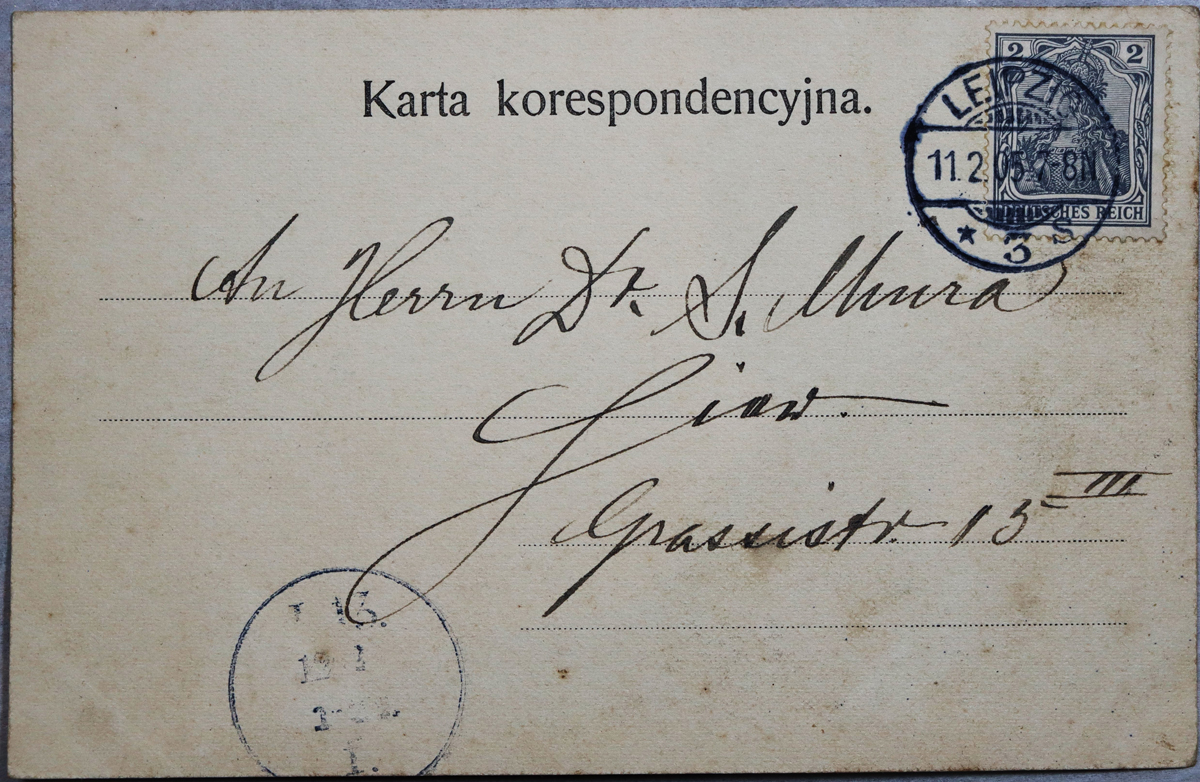 Karta korespondencyjna.
2 2
DEUTSCHES REICH
LEIPZIG
11.2.05 7-8N
* 3 S
An Herrn Dr. S. Miura
hier.
Grassistr. 15 III